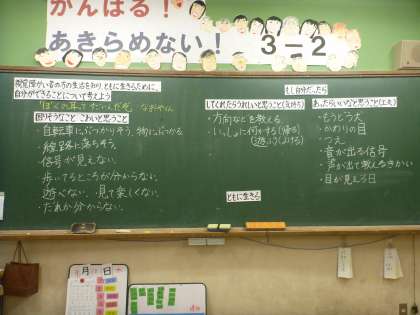 がんばる！
あきらめない！
3－2
視覚障がい者の方の生活を知り、ともに生きるために、
自分ができることについて考えよう
「ぼくの耳って
困りそうなこと・こわいと思うこと
・自転車にぶつかりそう。物にぶつかる
・線路に落ちそう。
・信号が見えない。
・歩いてるところが分からない。
・遊べない。・見て楽しくない。
・だれか分からない。
もし自分だったら
してくれたらうれしいと思うこと(気持ち)
・方向などを教える
・いっしょに何かする(帰る)
あったらいいなと思うこと(工夫)
・もうどう犬
・かわりの目
・つえ
・音が出る信号
・声が出て教えるきかい
・目が見える日
ともに生きる
月
日